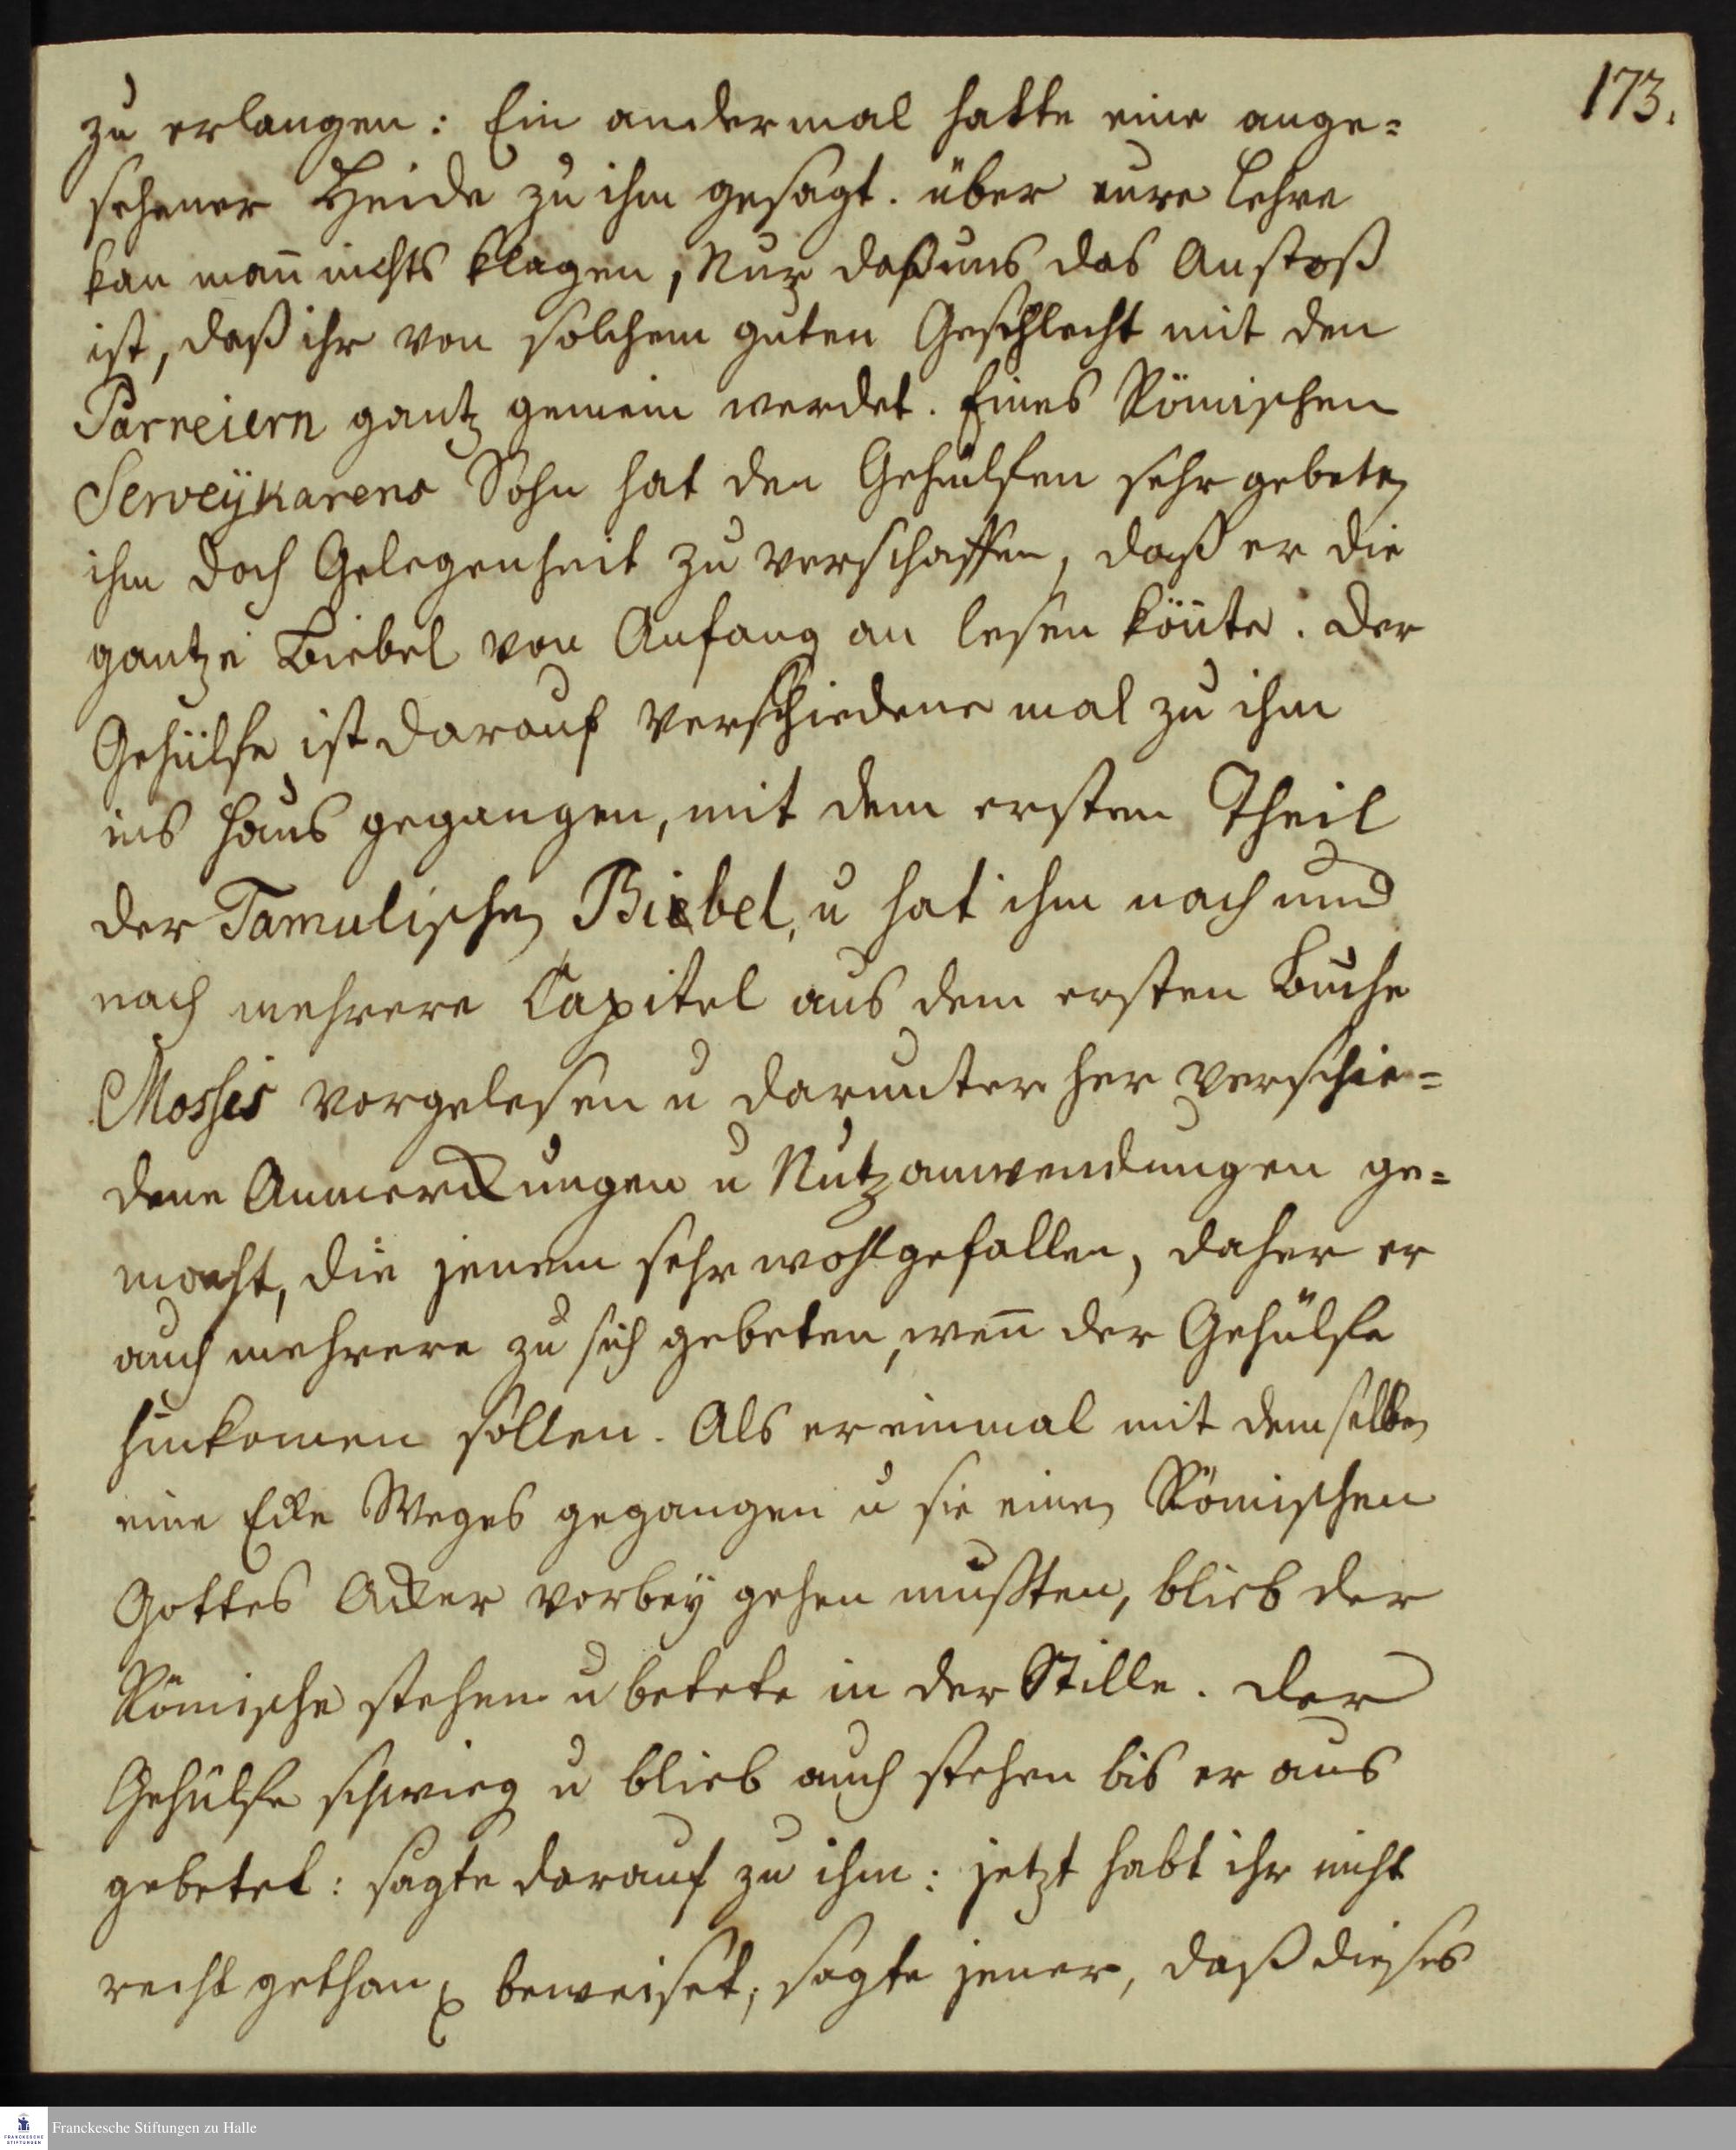 173.
zu erlangen: Ein andermal hatte eine ange=
sehener Heide zu ihm gesagt. über eure Lehre
kan man̄ nichts klagen, Nur daß uns das Anstoß
ist, daß ihr von solchem guten Geschlecht mit den
Parreiern gantz gemein werdet. Eines Römischen
Serveÿkarens Sohn hat den Gehülfen sehr gebeten
ihm doch Gelegenheit zu verschaffen, daß er die
gantze Biebel von Anfang an lesen kön̄te. Der
Gehülfe ist darauf verschiedene mal zu ihm
ins Haus gegangen, mit dem ersten Theil
der Tamulischen Biebel, u hat ihm nach und
nach mehrere Capitel aus dem ersten Buche
Mosis vorgelesen u darunter her verschie=
dene Anmerckungen u Nutzanwendungen ge=
macht, die jenem sehr wohlgefallen, daher er
auch mehrere zu sich gebeten, wen̄ der Gehülfe
hinkomen sollen. Als er einmal mit demselben
eine Ecke Weges gegangen u sie einen Römischen
Gottes Acker vorbeÿ gehen mußten, blieb der
Römische stehen u betete in der Stille. Der
Gehülfe schwieg u blieb auch stehen bis er aus
gebetet: sagte darauf zu ihm: jetzt habt ihr nicht
recht gethan, beweiset, sagte jener, daß dieses
Franckesche Stiftungen zu Halle